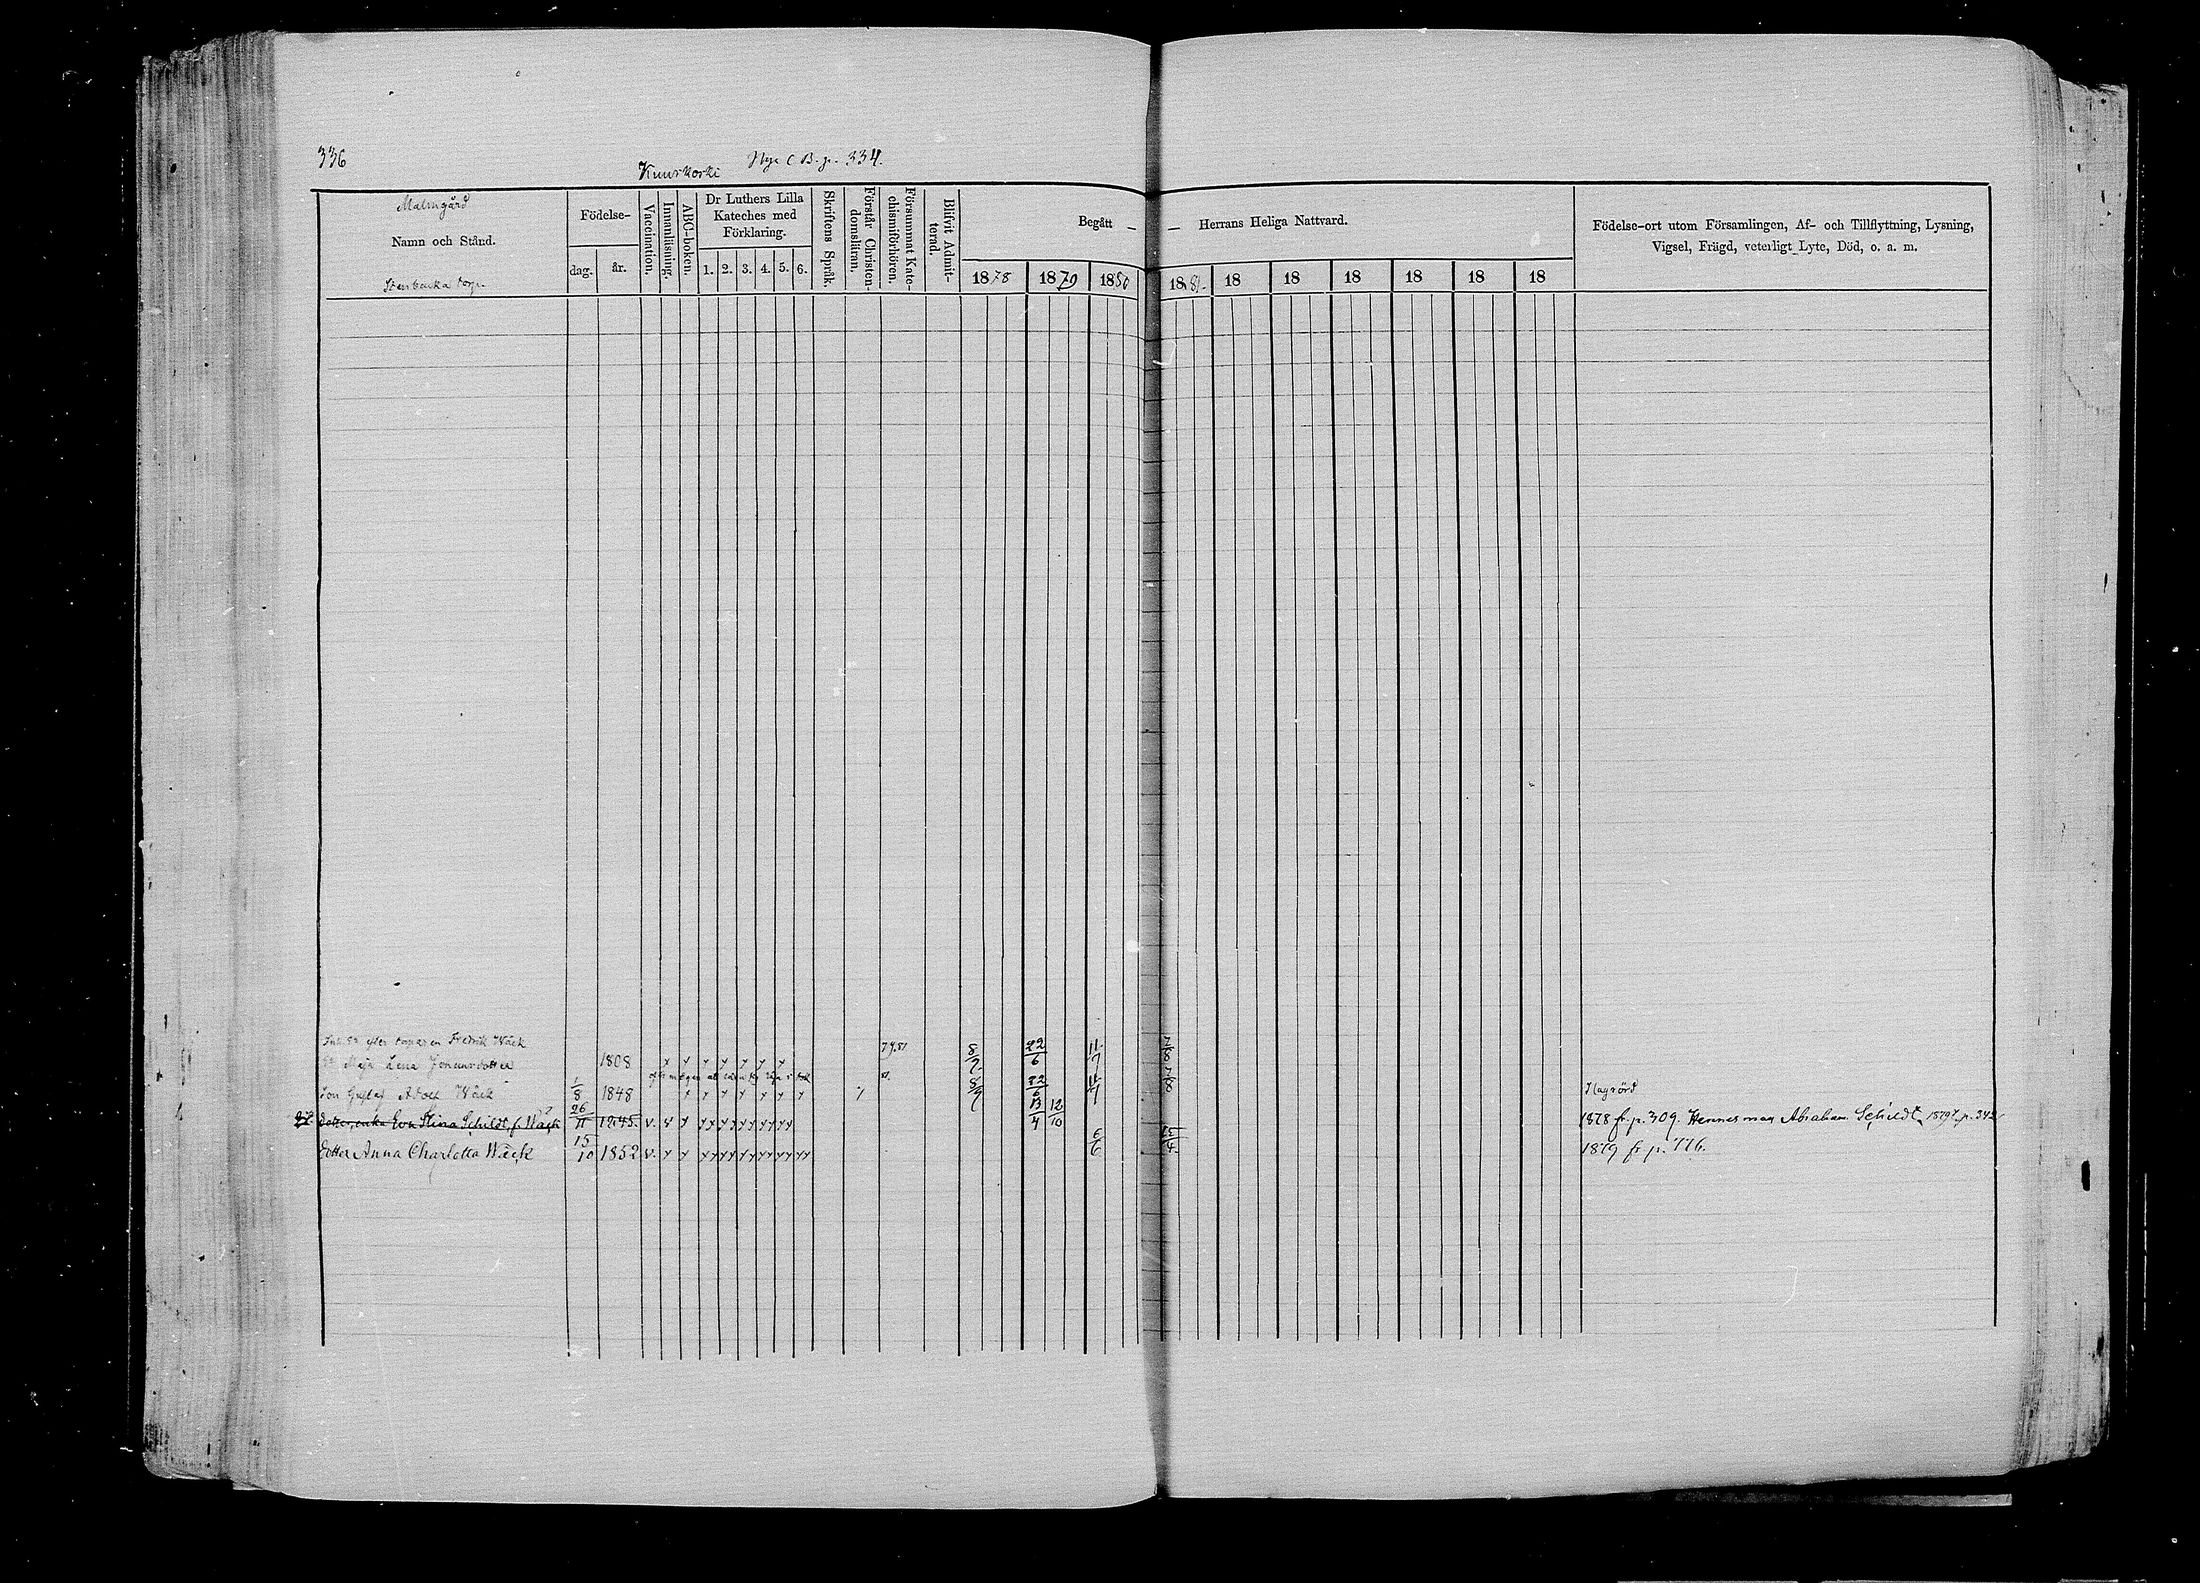 336
Kuurkoski Nya C B. p. 334.
Malmgård
Namn och Stånd.
Stenbacka torp.
Födelse-
dag. år.
Vaccination.
Innanläsning.
ABC-boken.
Dr Luthers Lilla
Kateches med
Förklaring.
1. 2. 3. 4. 5. 6.
Skriftens Språk.
Förstår Christen-
domsläran.
Försummat Kate-
chismiförhören.
Blifvit Admit-
terad.
Begått Herrans Heliga Nattvard.
1878 1879 1880 1881. 18 18 18 18 18 18
Födelse-ort utom Församlingen, Af- och Tillflyttning, Lysning,
Vigsel, Frägd, veterligt Lyte, Död, o. a. m.
efter torparen Fredrik Wäck 79.81 8/2 22/6 11/7 7/8
Maja Lena 1808
Son Gustaf Adolf Wäck 1/8 1848 22/6 7/8
Dotter, enka Eva Stina Schildt, f. Wäck 26/11 1845. v. 13/4 12/10 1878 fr. p. 309. Hennes man Abraham Schildt 1879 t. p. 342
Dotter Anna Charlotta Wäck 15/10 1852 v. 6/6 1879 fr p. 776.